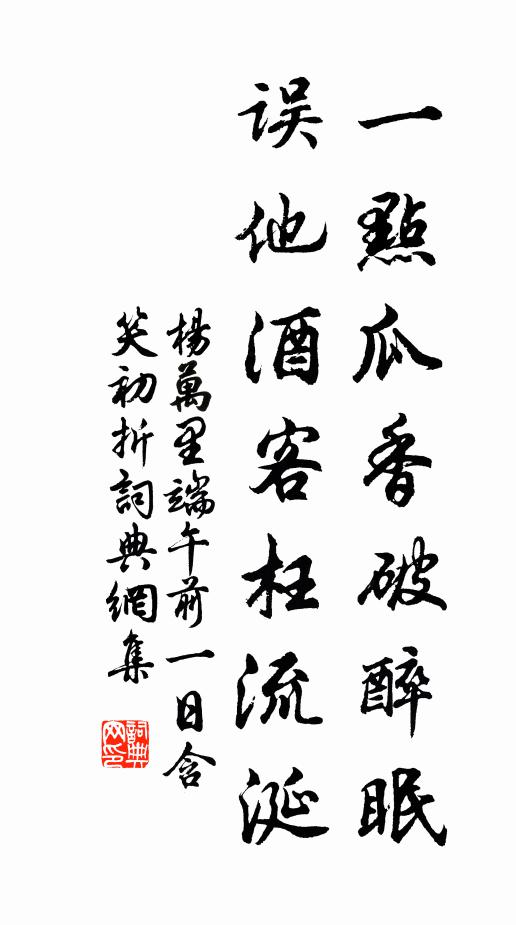 一點瓜香破醉眠
误他酒客枉流涎
楊萬里端午前一日含
笑初折詞典網集
詞典
网印